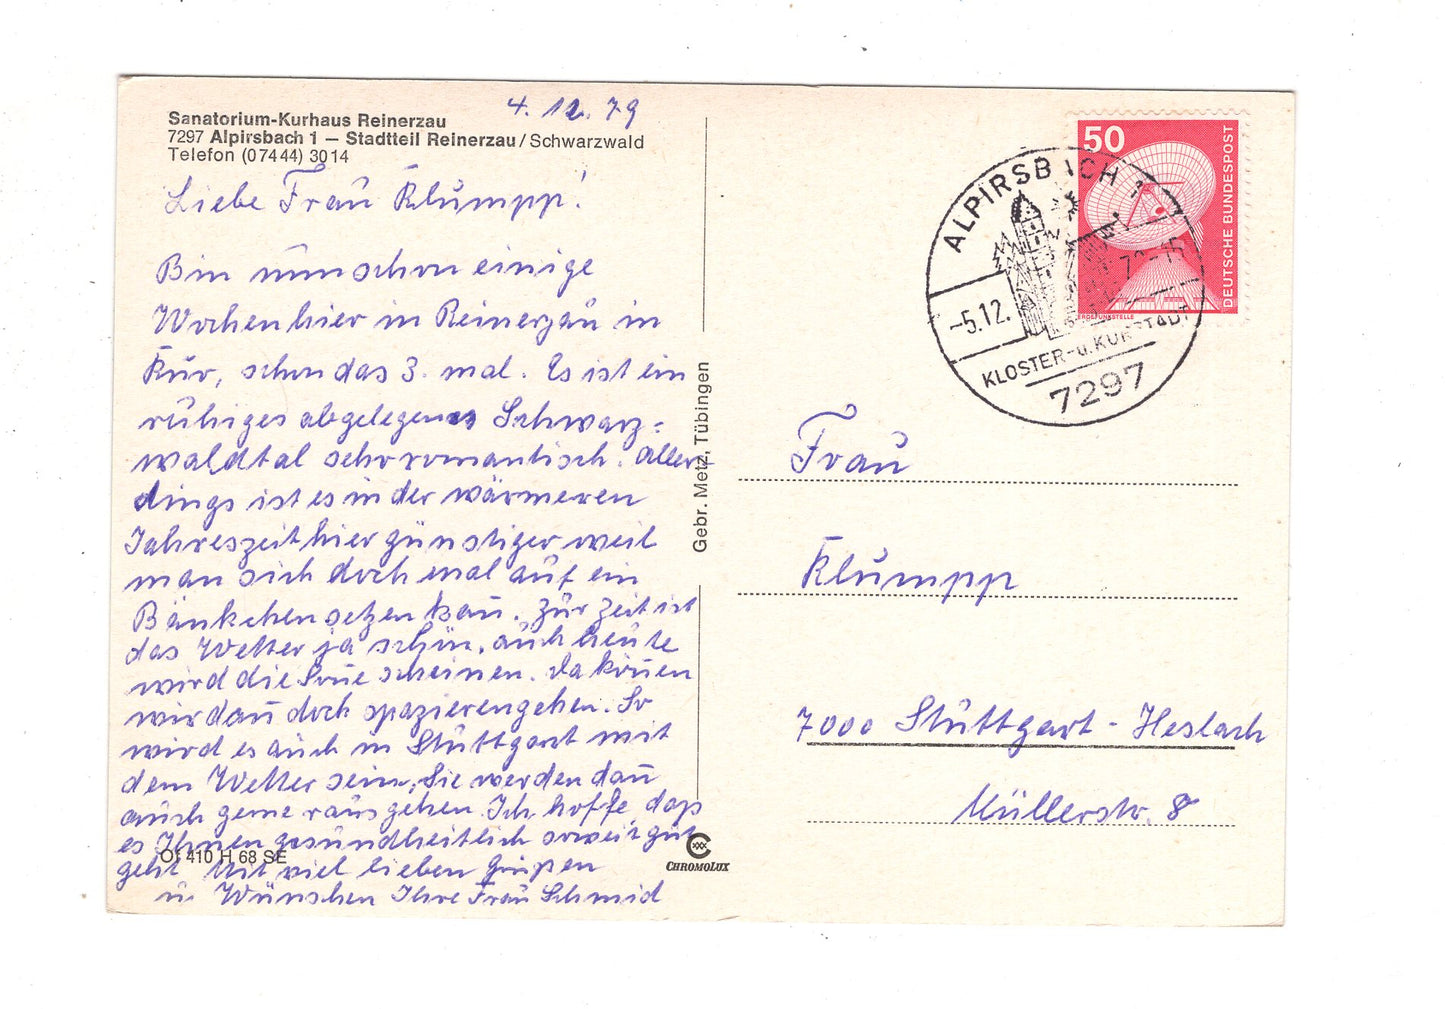 4. 12. 79
Sanatorium-Kurhaus Reinerzau
7297 Alpirsbach 1 – Stadtteil Reinerzau/Schwarzwald
Telefon (07444) 3014
Liebe Frau Klumpp!
Bin nun schon einige
Wochen hier in Reinerzau in
Kur, schon das 3. mal. Es ist ein
ruhiges abgelegenes Schwarz=
waldtal sehr romantisch. Aller=
dings ist es in der wärmeren
Jahreszeit hier günstiger weil
man sich doch mal auf ein
Bänkchen setzen kañ. Zur Zeit ist
das Wetter ja schön, auch heute
wird die Soñe scheinen. Da köñen
wir dañ doch spazierengehen. So
wird es auch in Stuttgart mit
dem Wetter sein, Sie werden dañ
auch gerne rausgehen. Ich hoffe, daß
es Ihnen gesundheitlich soweit gut
geht. Mit viel lieben Grüßen
u. Wünschen Ihre Frau Schmid
Of 410 H 68 SE
Gebr. Metz, Tübingen
CHROMOLUX
50
DEUTSCHE BUNDESPOST
ERDEFUNKSTELLE
ALPIRSBACH 1
-5.12.
79-15
KLOSTER-u.KURSTADT
7297
Frau
Klumpp
7000 Stuttgart - Heslach
Müllerstr. 8